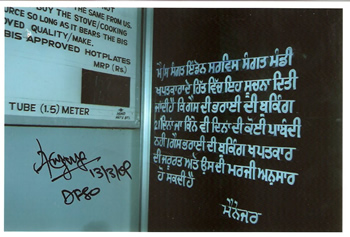 THE SAME FROM US.
BUY THE STOVE/COOKING
URCE SO LONG AS IT BEARS THE BIS
OVED QUALITY/MAKE.
BIS APPROVED HOTPLATES
MRP (Rs)
TUBE (1.5) METER
13/3/09
DFSO
ਮੈ/ਸ ਸੰਗਤ ਇੰਡੇਨ ਸਰਵਿਸ ਸੰਗਤ ਮੰਡੀ
ਖਪਤਕਾਰਾਂ ਦੇ ਹਿੱਤ ਵਿੱਚ ਇਹ ਸੂਚਨਾ ਦਿਤੀ
ਜਾਂਦੀ ਹੈ ਕਿ ਗੈਸ ਦੀ ਭਰਾਈ ਦੀ ਬੁਕਿੰਗ
21 ਦਿਨਾਂ ਜਾਂ ਕਿੰਨੇ ਵੀ ਦਿਨਾਂ ਦੀ ਕੋਈ ਪਾਬੰਦੀ
ਨਹੀਂ। ਗੈਸ ਭਰਾਈ ਦੀ ਬੁਕਿੰਗ ਖਪਤਕਾਰ
ਦੀ ਜਰੂਰਤ ਅਤੇ ਉਸਦੀ ਮਰਜੀ ਅਨੁਸਾਰ
ਹੋ ਸਕਦੀ ਹੈ
ਮੈਨੇਜਰ